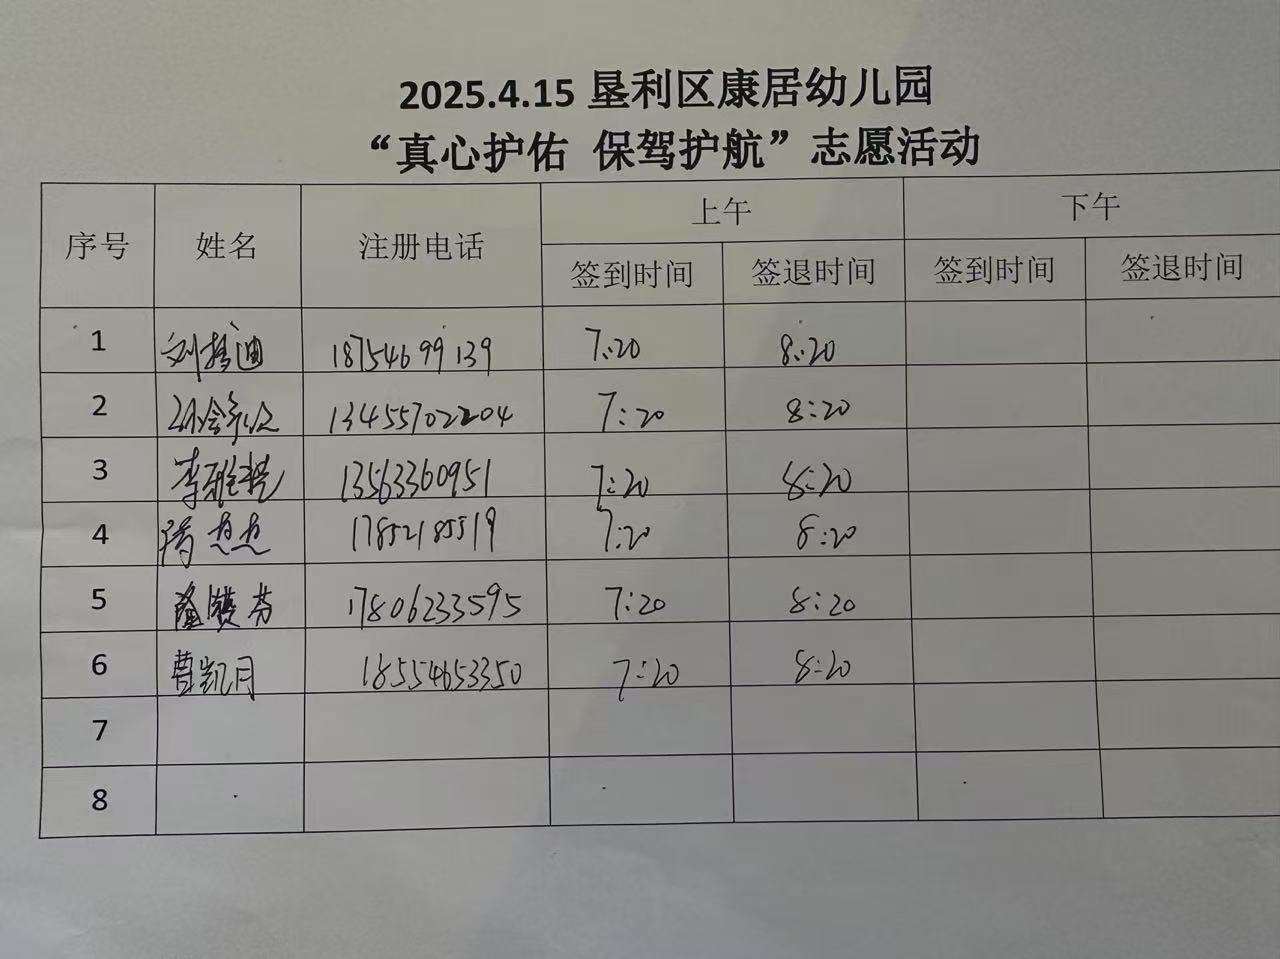 2025.4.15 垦利区康居幼儿园
“真心护佑 保驾护航”志愿活动
序号 姓名 注册电话 上午 下午
签到时间 签退时间 签到时间 签退时间
1 18754699139 7:20 8:20
2 13455702204 7:20 8:20
3 13563360951 7:20 8:20
4 17852185519 7:20 8:20
5 17806233595 7:20 8:20
6 曹凯月 18554653350 7:20 8:20
7
8